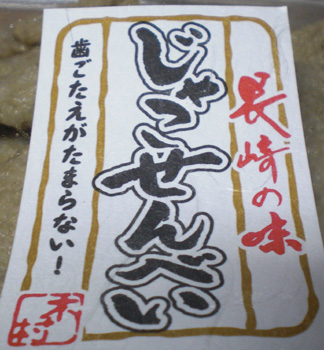 長崎の味
じゃこせんべい
歯ごたえがたまらない!